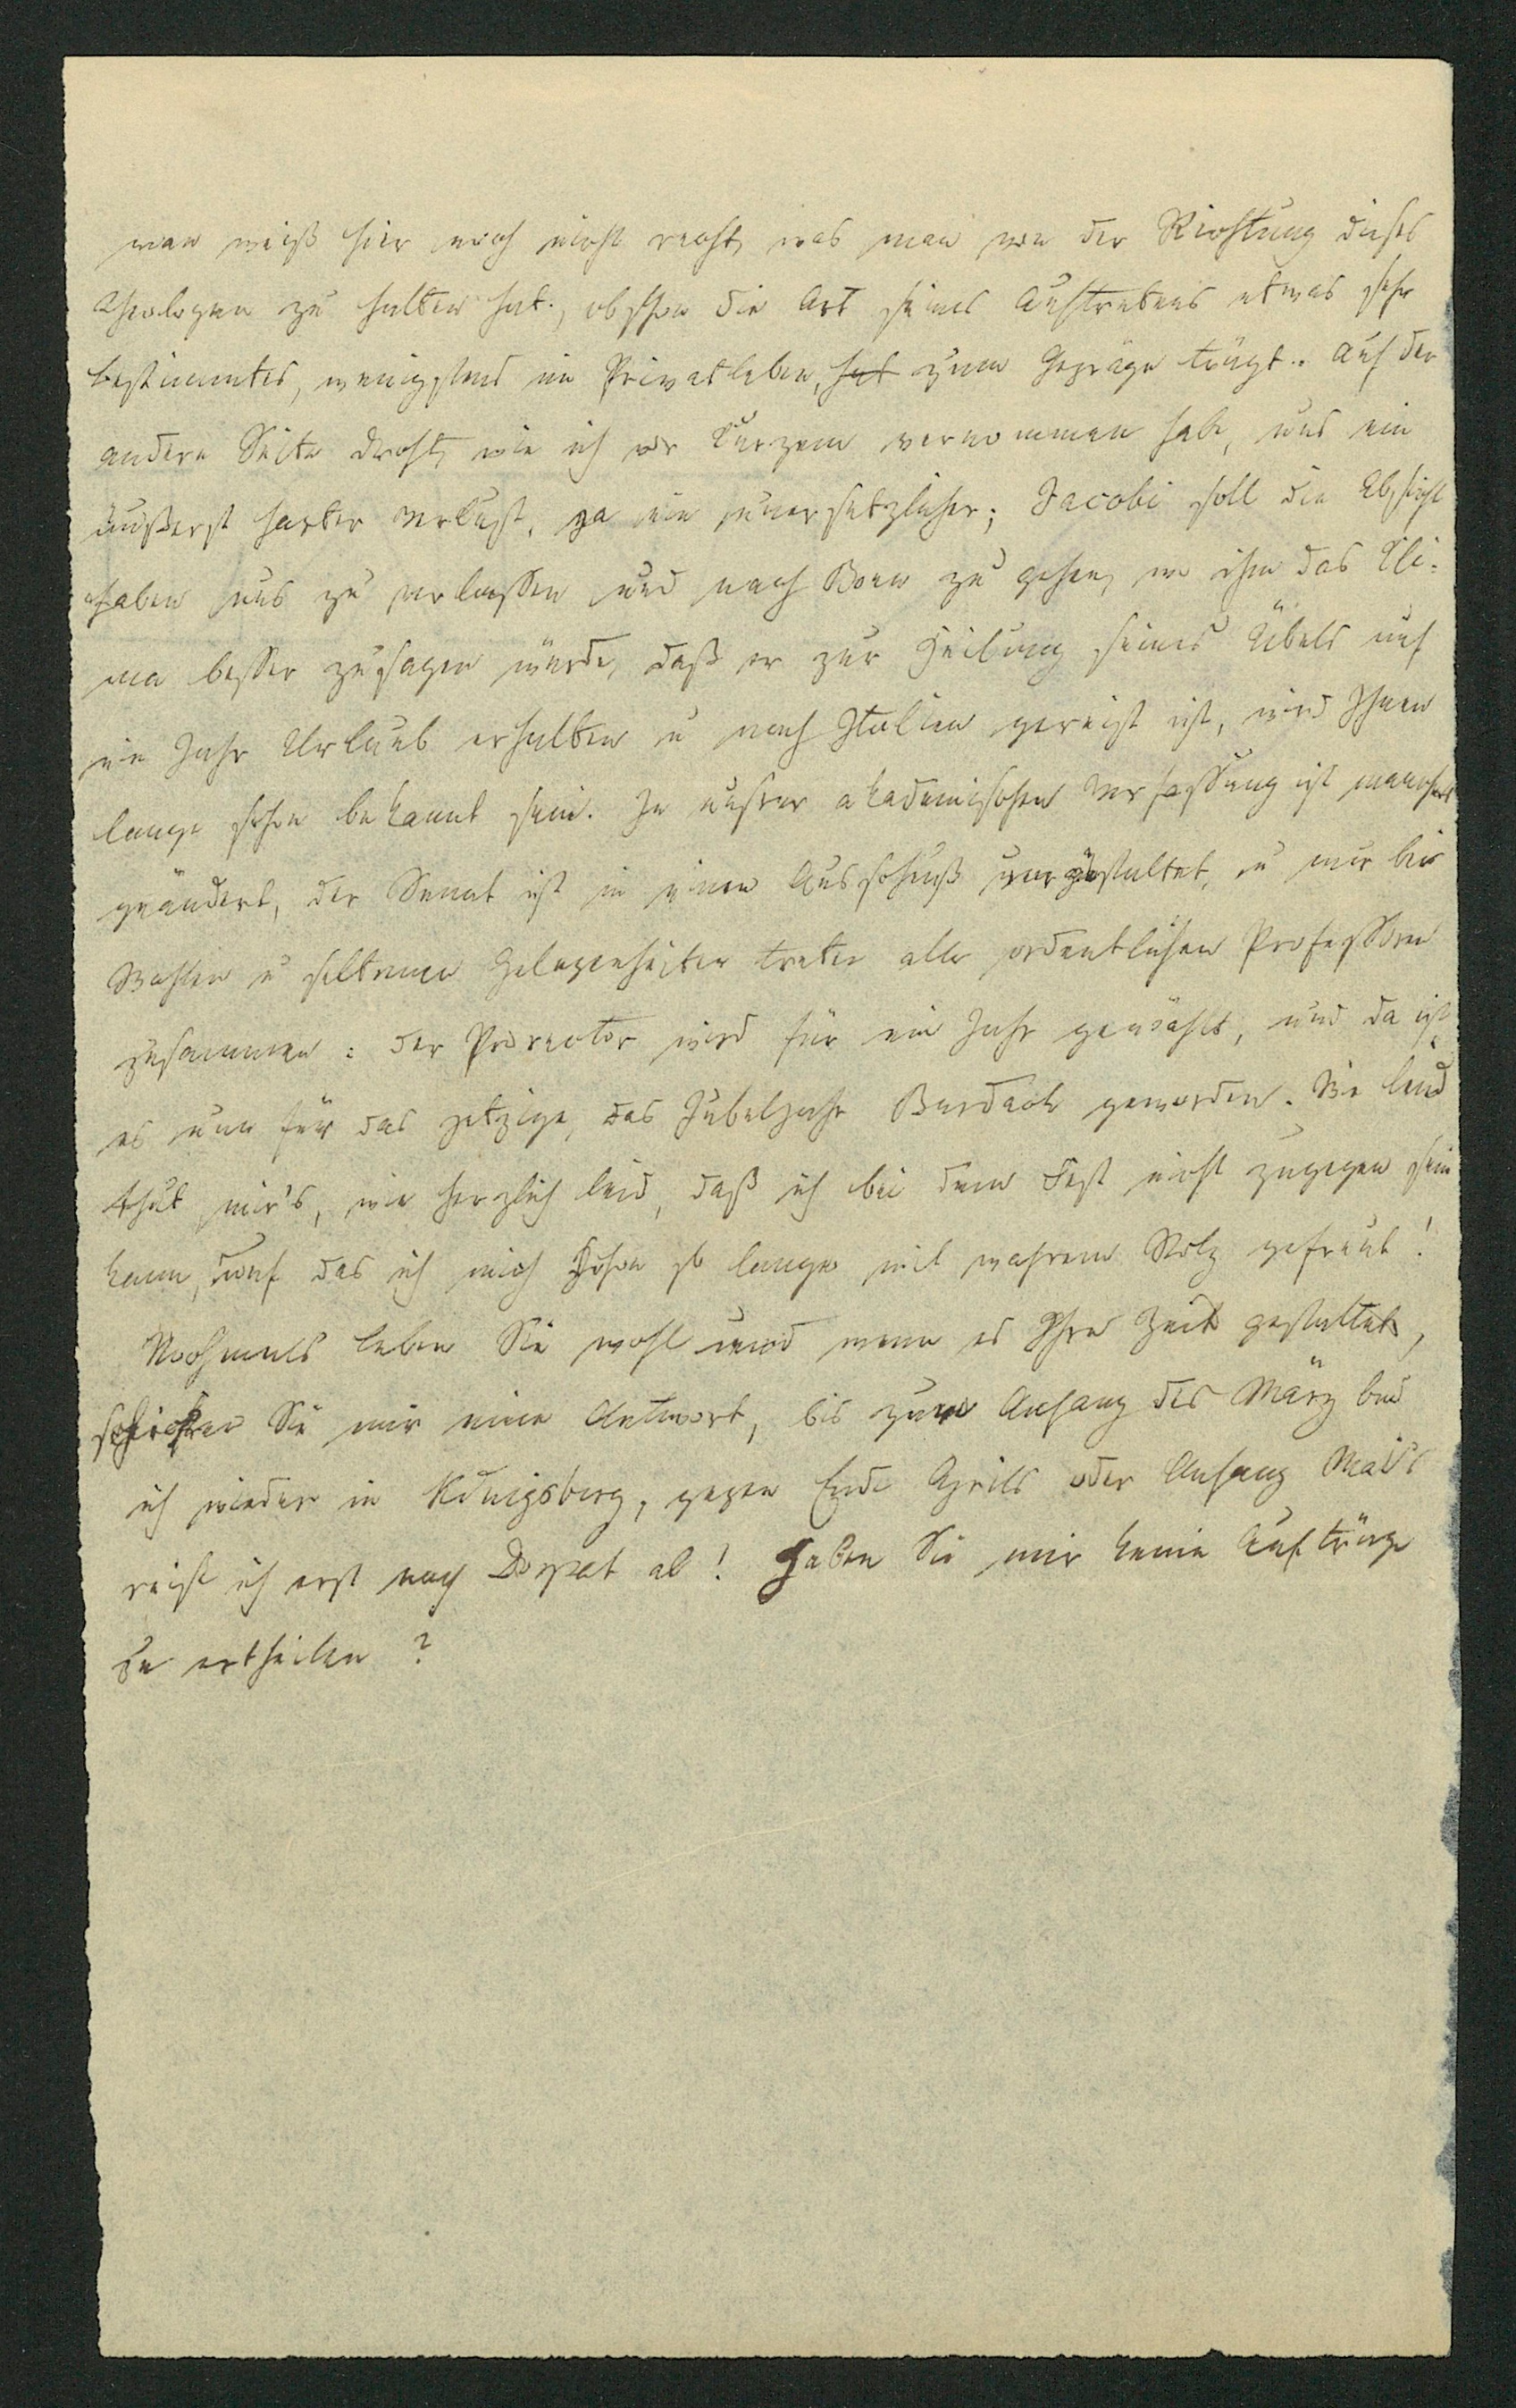 man weiß hier noch nicht recht, was man von der Richtung dieses
Theologen zu halten hat., obschon die Art seines Auftretens etwas sehr
bestimmtes, wenigstens im Privatleben, hat zum Gepräge trägt. Auf der
andern Seite droht, wie ich vor Kurzem vernommen habe, uns ein
äußerst harter Verlust, ja ein unersetzlicher; Jacobi soll die Absicht
haben uns zu verlassen und nach Bonn zu gehen, wo ihm das Cli-
ma besser zusagen würde, daß er zur Heilung seines Übels auf
ein Jahr Urlaub erhalten u nach Italien gereist ist, wird Ihnen
lange schon bekannt sein. In unsrer akademischen Verfassung ist manches
geändert, der Senat ist in einen Ausschuß umgestaltet, u nur bei
Wahlen u seltenen Gelegenheiten treten alle ordentlichen Professoren
zusammen: der Prorector wird für ein Jahr gewählt, und da ist
es nun für das jetzige, das Jubeljahr Burdach geworden. Wie leid
thut mir's, wie herzlich leid, daß ich bei dem Fest nicht zugegen sein
kann, auf das ich mich schon so lange mit wahrem Stolz gefreut!
Nochmals leben Sie wohl und wenn es Ihre Zeit gestattet,
schicken Sie mir eine Antwort, bis zum Anfang des März bin
ich wieder in Königsberg, gegen Ende Aprils oder Anfang Mai's
reise ich erst nach Dorpat ab! Haben Sie mir keine Aufträge
zu ertheilen?